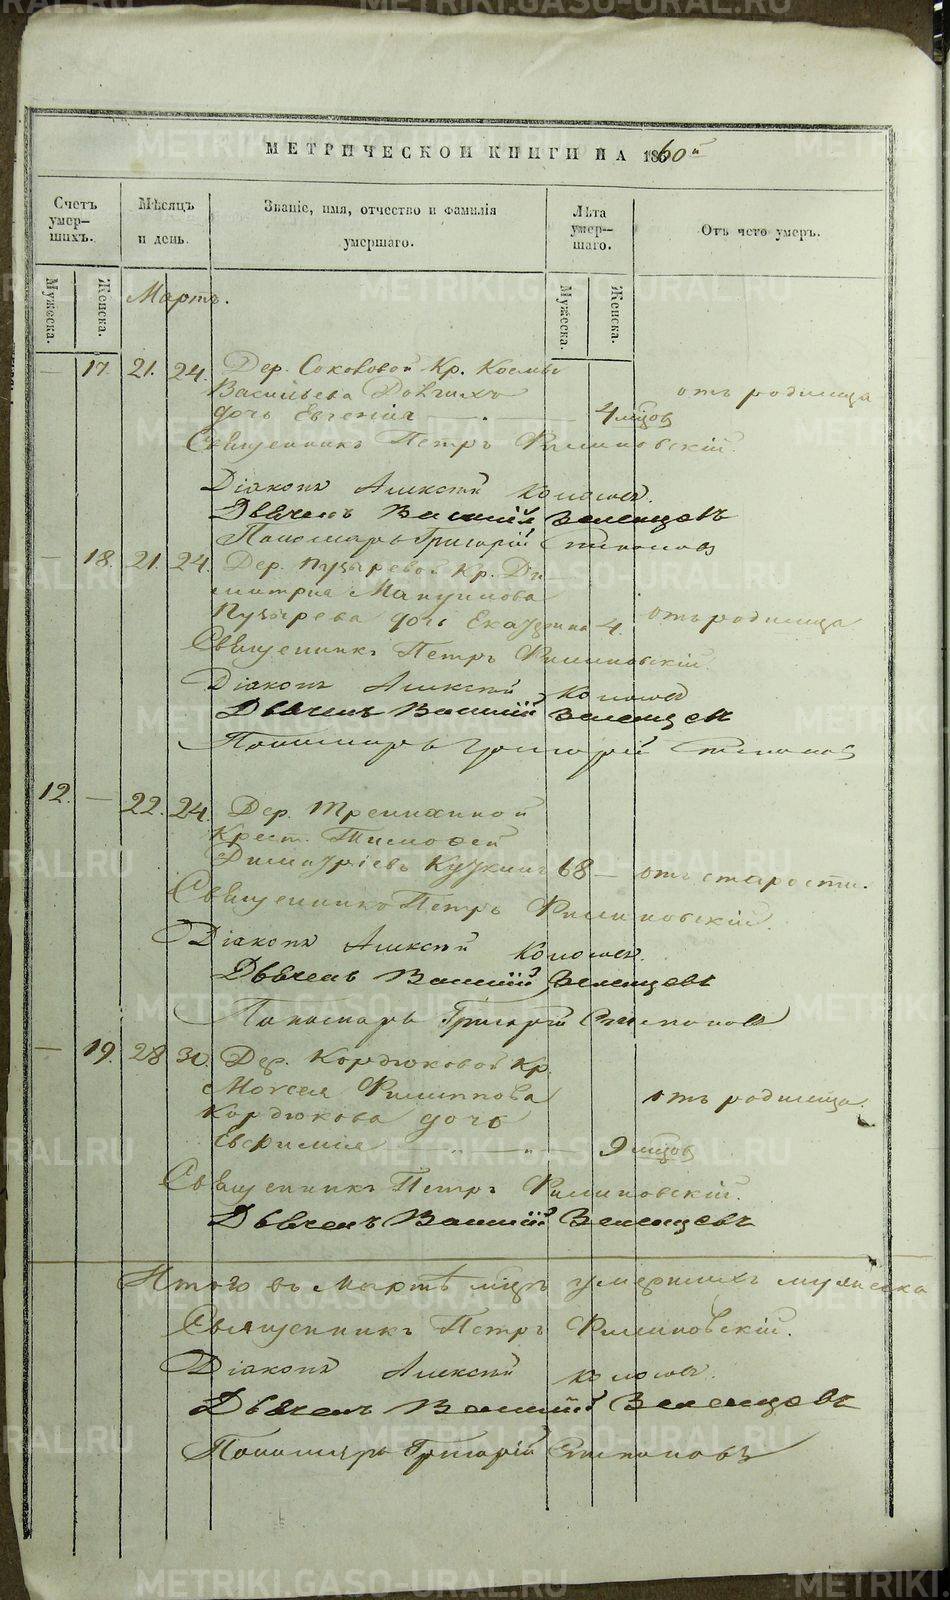 МЕТРИЧЕСКОЙ КНИГИ НА 1860й
Счетъ умер—шихъ.
Мѣсяцъ и день.
Званіе, имя, отчество и фамилія умершаго.
Лѣта умер—шаго.
Отъ чего умеръ.
Мужеска.
Женска.
Мужеска.
Женска.
Мартъ.
— 17. 21. 24. Дер. Соколовой Кр. Космы
Васильева Довгихъ отъ родимца
дочь Евгенія 4 мцов
Священникъ Петръ Филиповскій.
Діаконъ Алексѣй
Дьячекъ Василій Зеленцовъ
Пономарь Григорій Степановъ
— 18. 21. 24. Дер. Пузыревой Кр. Ди
митрія
Пузырева дочь 4. отъ родимца
Священникъ Петръ Филиповскій.
Діаконъ Алексѣй
Дьячекъ Василій Зеленцовъ
Пономарь Григорій Степановъ
12. — 22. 24. Дер. Тренихиной
Крест. Тимофей
Димитріевъ 68 — отъ старости.
Священникъ Петръ Филиповскій.
Діаконъ Алексѣй
Дьячекъ Василій Зеленцовъ
Пономарь Григорій Степановъ
— 19. 28 30. Дер. Кордюковой Кр.
Моисея Филиппова отъ родимца.
Кордюкова дочь
Евфимія — 9 мцов
Священникъ Петръ Филиповскій.
Дьячекъ Василій Зеленцовъ
Итого въ Мартѣ мцѣ умершихъ мужеска
Священникъ Петръ Филиповскій.
Діаконъ Алексѣй
Дьячекъ Василій Зеленцовъ
Пономарь Григорій Степановъ
METRIKI.GASO-URAL.RU